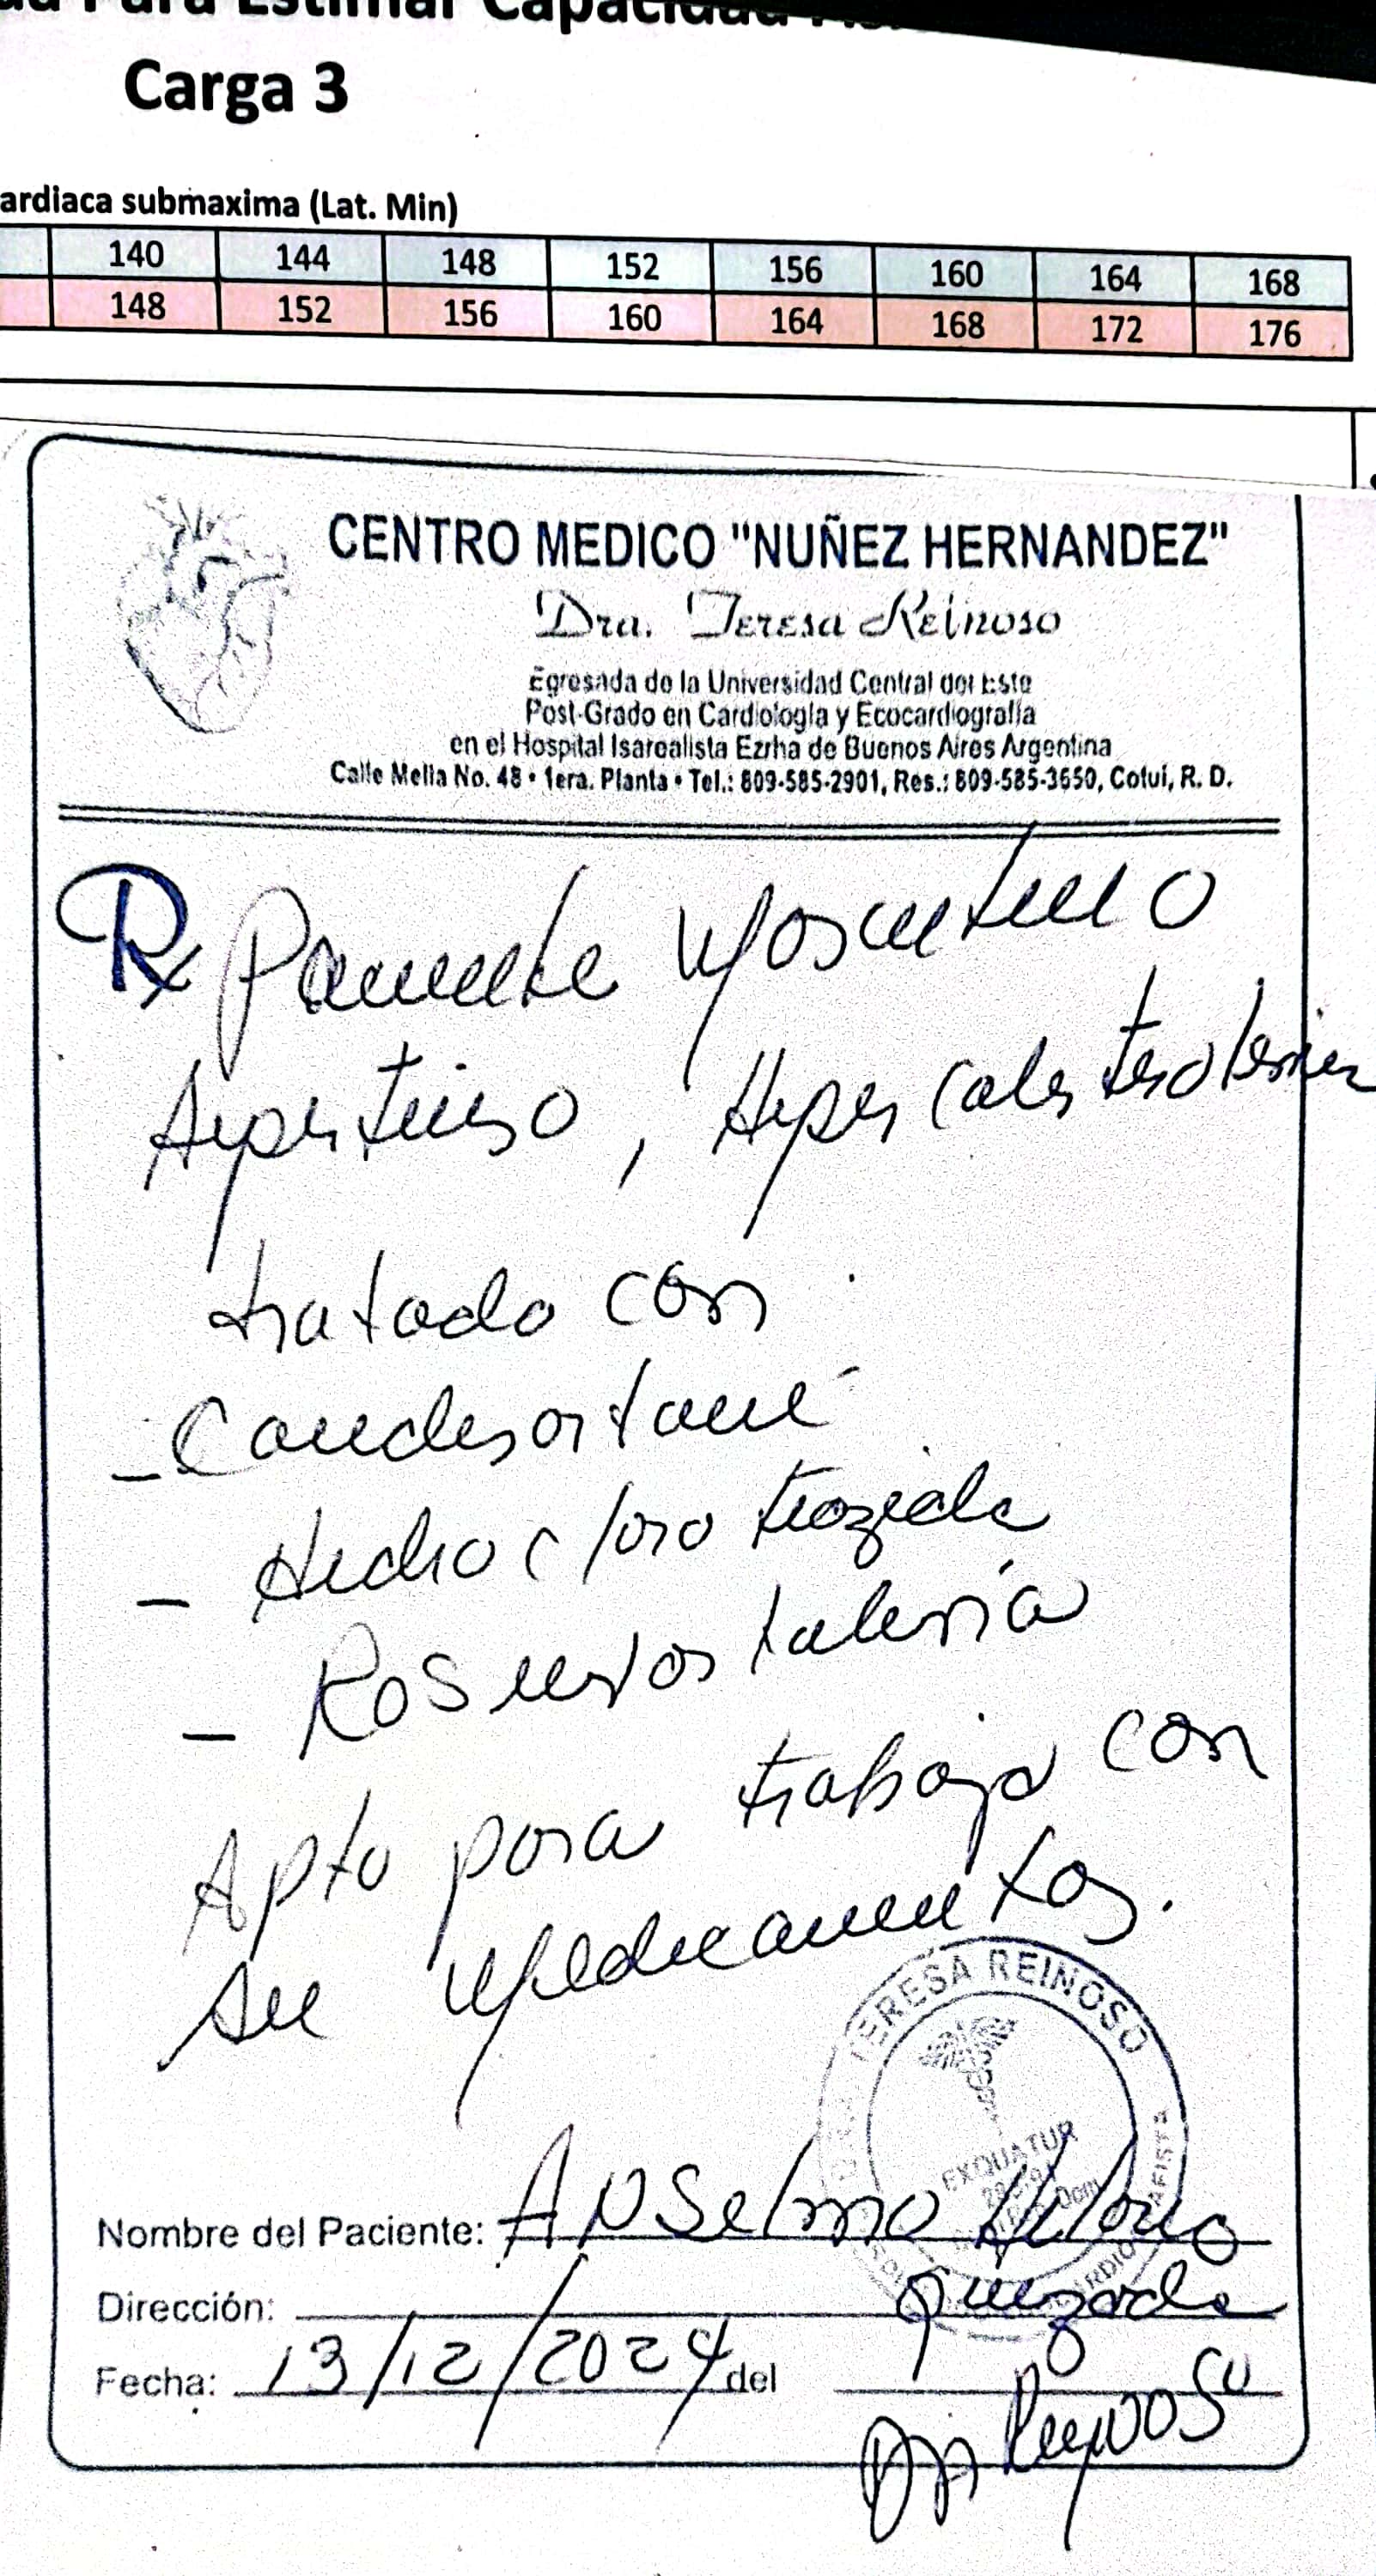 Para Estimar Capacidad
Carga 3
ardiaca submaxima (Lat. Min)
140 144 148 152 156 160 164 168
148 152 156 160 164 168 172 176
CENTRO MEDICO "NUÑEZ HERNANDEZ"
Dra. Teresa Reinoso
Egresada de la Universidad Central del Este
Post-Grado en Cardiología y Ecocardiografía
en el Hospital Isarealista Ezrha de Buenos Aires Argentina
Calle Mella No. 48 • 1era. Planta • Tel.: 809-585-2901, Res.: 809-585-3650, Cotuí, R. D.
Rx Paciente Masculino
Hipertenso, Hipercolesterolemia
tratado con
- Candesartane
- Hidroclorotiazida
- Rosuvastatina
Apto para trabajo con
su Medicamentos.
TERESA REINOSO
EXQUATUR
Nombre del Paciente: Anselmo
Quezada
Dirección:
Fecha: 13/12/2024 del
Dra Reynoso